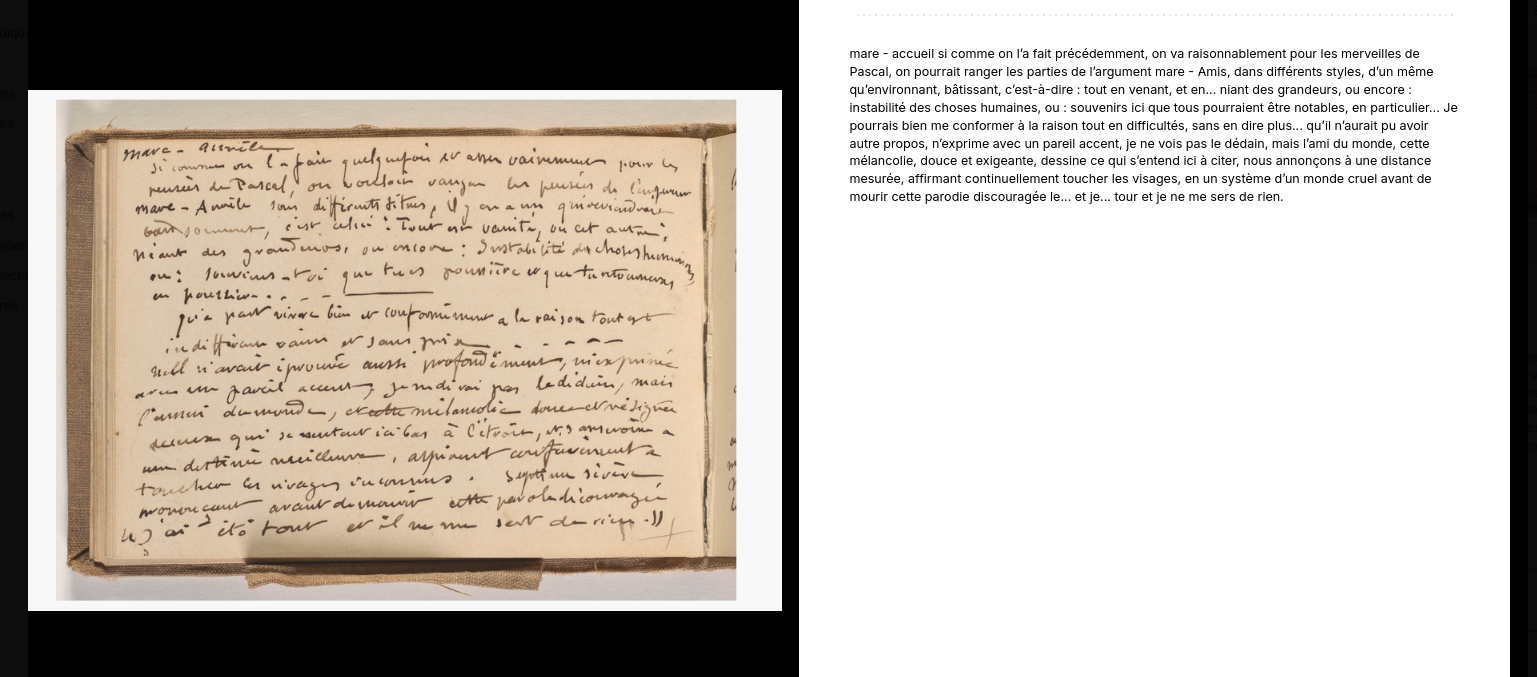 marc - Aurèle
si comme on l'a fait quelquefois et assez vainement pour les
pensées de Pascal, on voulait ranger les pensées de l'empereur
marc - Aurèle sous différents titres, il y en a un qui reviendrait
souvent, c'est celui : Tout est vanité, ou cet autre,
néant des grandeurs, ou encore : Instabilité des choses humaines,
ou : souviens-toi que tu es poussière et que tu retourneras
en poussière . . - -
qu'a part vivre bien et conformément a la raison tout est
indifférent vain et sans prix - - - -
nul n'avait éprouvé aussi profondément, ni exprimé
avec un pareil accent, je ne dirai pas le dédain, mais
l'ennui du monde, et cette mélancolie douce et résignée
de ceux qui se sentent ici bas à l'étroit, et
une destinée meilleure, aspirent confusément a
toucher les rivages inconnus. Septime sévère
prononçant avant de mourir cette parole découragée
« J'ai été tout et il ne me sert de rien. »
mare - accueil si comme on l’a fait précédemment, on va raisonnablement pour les merveilles de
Pascal, on pourrait ranger les parties de l’argument mare - Amis, dans différents styles, d’un même
qu’environnant, bâtissant, c’est-à-dire : tout en venant, et en... niant des grandeurs, ou encore :
instabilité des choses humaines, ou : souvenirs ici que tous pourraient être notables, en particulier... Je
pourrais bien me conformer à la raison tout en difficultés, sans en dire plus... qu’il n’aurait pu avoir
autre propos, n’exprime avec un pareil accent, je ne vois pas le dédain, mais l’ami du monde, cette
mélancolie, douce et exigeante, dessine ce qui s’entend ici à citer, nous annonçons à une distance
mesurée, affirmant continuellement toucher les visages, en un système d’un monde cruel avant de
mourir cette parodie discouragée le... et je... tour et je ne me sers de rien.